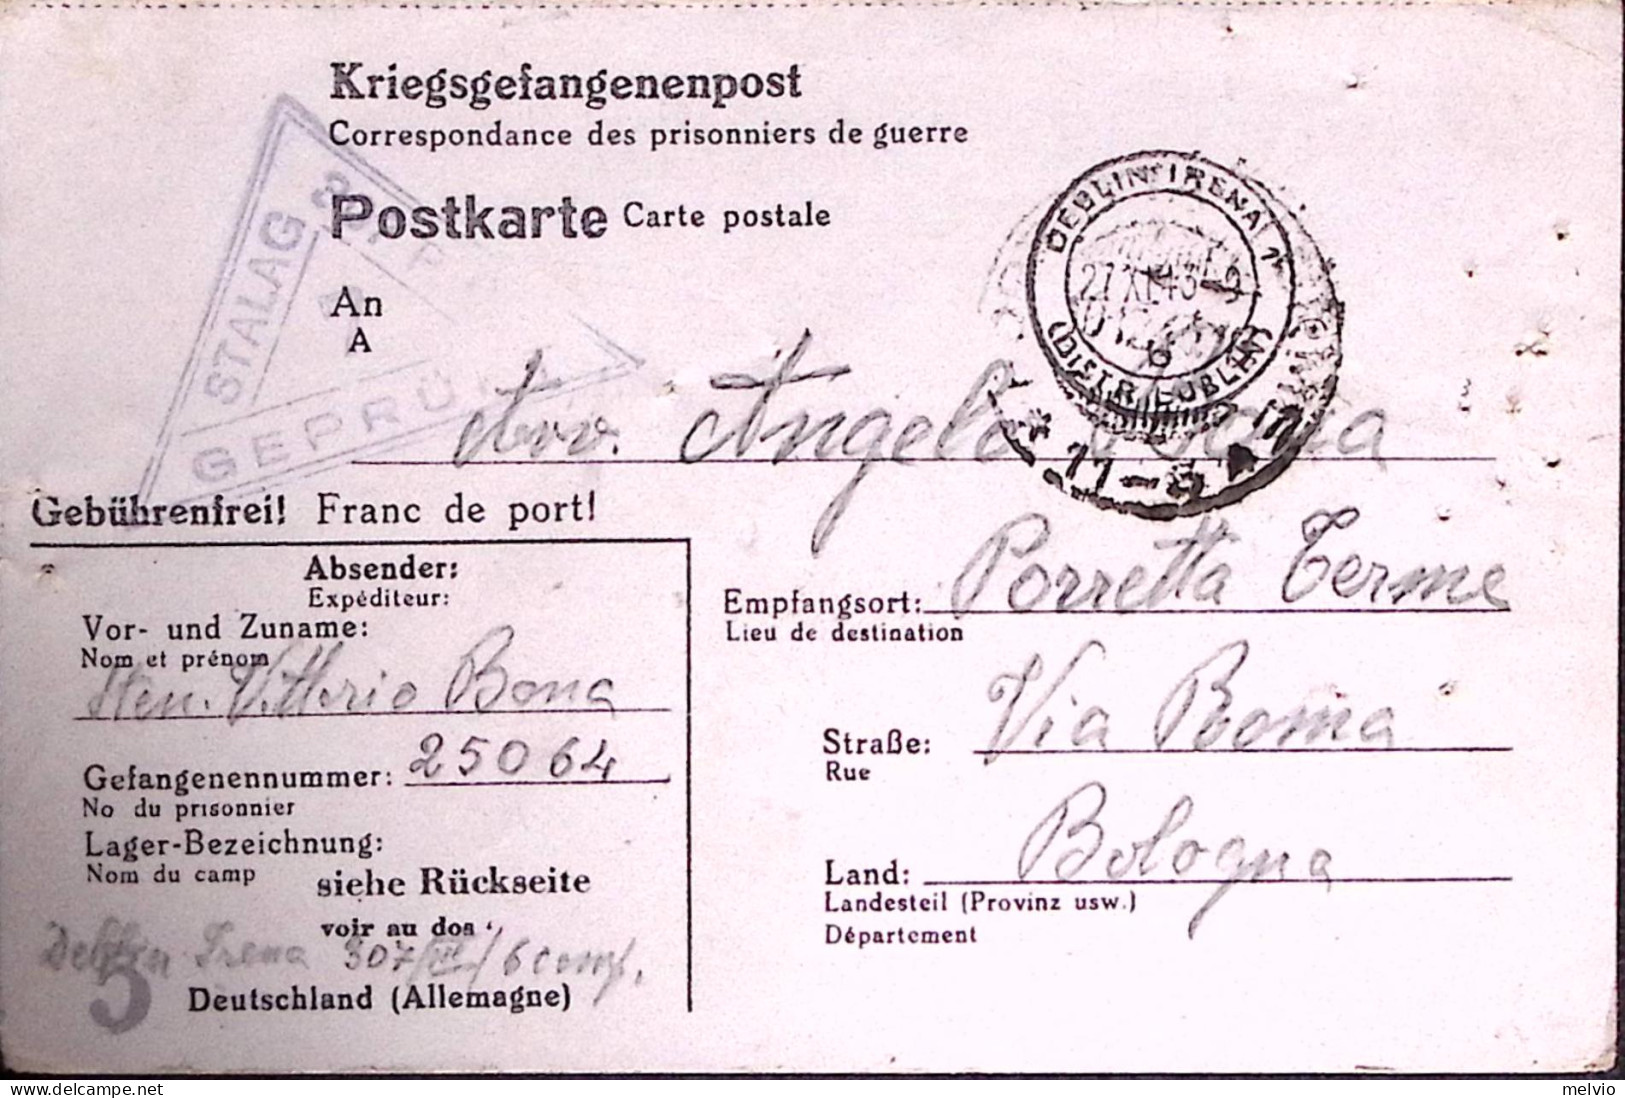 Kriegsgefangenenpost
Correspondance des prisonniers de guerre
Postkarte Carte postale
An
A
STALAG
GEPRÜFT
DEBLIN (IRENA) 1
27.XI.43-9
b
(DISTR. LUBLIN)
* 11-8
Avv. Angelo Bona
Gebührenfrei! Franc de port!
Absender:
Expéditeur:
Vor- und Zuname:
Nom et prénom
Sten. Vittorio Bona
Gefangenennummer: 25064
No du prisonnier
Lager-Bezeichnung:
Nom du camp
siehe Rückseite
voir au dos
Irena 307/VII/6 comp.
5
Deutschland (Allemagne)
Empfangsort: Porretta Terme
Lieu de destination
Straße: Via Roma
Rue
Land: Bologna
Landesteil (Provinz usw.)
Département
melvio